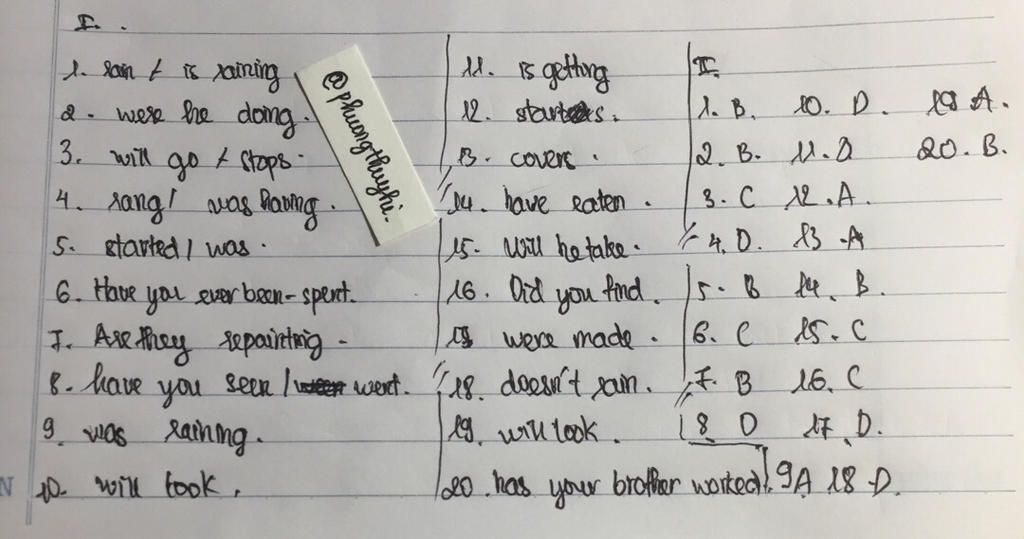 I.
1. rain / is raining
2. were he doing.
3. will go / stops.
4. rang / was having.
5. started / was.
6. Have you ever been - spent.
7. Are they repainting -
8. have you seen / went.
9. was raining.
10. will took.
@phuongthuyhi.
11. is getting
12. starts.
13. covers.
14. have eaten.
15. Will he take.
16. Did you find.
were made.
18. doesn't rain.
19. will look.
20. has your brother worked.
II.
1. B. 10. D. 19 A.
2. B. 11. D 20. B.
3. C 12. A.
4. D. 13. A
5. B 14. B.
6. C 15. C
7. B 16. C
8. D 17. D.
9A 18 D.